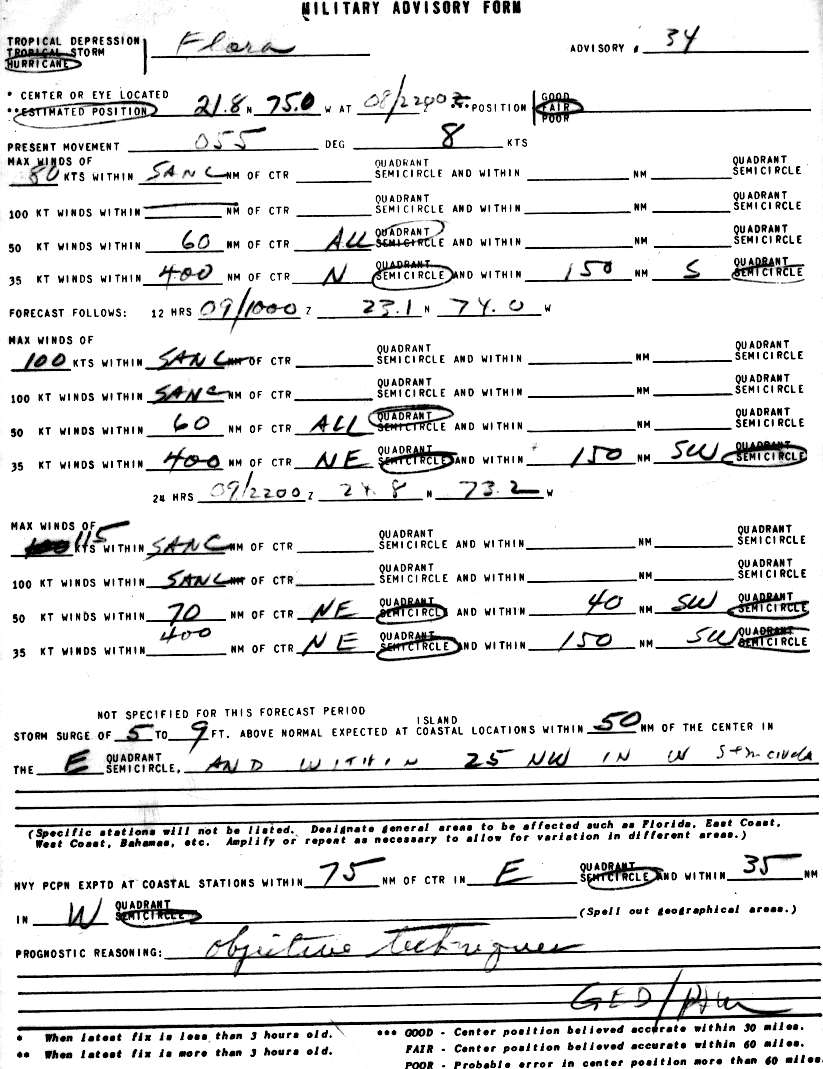 MILITARY ADVISORY FORM
TROPICAL DEPRESSION
TROPICAL STORM Flora ADVISORY # 34
HURRICANE
* CENTER OR EYE LOCATED GOOD
**ESTIMATED POSITION 21.8 N 75.0 W AT 08/2200 Z ** POSITION FAIR
POOR
PRESENT MOVEMENT 055 DEG 8 KTS
MAX WINDS OF QUADRANT QUADRANT
80 KTS WITHIN SANC NM OF CTR SEMICIRCLE AND WITHIN NM SEMICIRCLE
100 KT WINDS WITHIN NM OF CTR QUADRANT SEMICIRCLE AND WITHIN NM QUADRANT SEMICIRCLE
50 KT WINDS WITHIN 60 NM OF CTR ALL QUADRANT SEMICIRCLE AND WITHIN NM QUADRANT SEMICIRCLE
35 KT WINDS WITHIN 400 NM OF CTR N QUADRANT SEMICIRCLE AND WITHIN 150 NM S QUADRANT SEMICIRCLE
FORECAST FOLLOWS: 12 HRS 09/1000 Z 23.1 N 74.0 W
MAX WINDS OF QUADRANT QUADRANT
100 KTS WITHIN SANC NM OF CTR SEMICIRCLE AND WITHIN NM SEMICIRCLE
100 KT WINDS WITHIN SANC NM OF CTR QUADRANT SEMICIRCLE AND WITHIN NM QUADRANT SEMICIRCLE
50 KT WINDS WITHIN 60 NM OF CTR ALL QUADRANT SEMICIRCLE AND WITHIN NM QUADRANT SEMICIRCLE
35 KT WINDS WITHIN 400 NM OF CTR NE QUADRANT SEMICIRCLE AND WITHIN 150 NM SW QUADRANT SEMICIRCLE
24 HRS 09/2200 Z 24.8 N 73.2 W
MAX WINDS OF QUADRANT QUADRANT
100 115 KTS WITHIN SANC NM OF CTR SEMICIRCLE AND WITHIN NM SEMICIRCLE
100 KT WINDS WITHIN SANC NM OF CTR QUADRANT SEMICIRCLE AND WITHIN NM QUADRANT SEMICIRCLE
50 KT WINDS WITHIN 70 NM OF CTR NE QUADRANT SEMICIRCLE AND WITHIN 40 NM SW QUADRANT SEMICIRCLE
35 KT WINDS WITHIN 400 NM OF CTR NE QUADRANT SEMICIRCLE AND WITHIN 150 NM SW QUADRANT SEMICIRCLE
NOT SPECIFIED FOR THIS FORECAST PERIOD
ISLAND
STORM SURGE OF 5 TO 9 FT. ABOVE NORMAL EXPECTED AT COASTAL LOCATIONS WITHIN 50 NM OF THE CENTER IN
THE E QUADRANT SEMICIRCLE, AND WITHIN 25 NW IN W
(Specific stations will not be listed. Designate general areas to be affected such as Florida, East Coast,
West Coast, Bahamas, etc. Amplify or repeat as necessary to allow for variation in different areas.)
HVY PCPN EXPTD AT COASTAL STATIONS WITHIN 75 NM OF CTR IN E QUADRANT SEMICIRCLE AND WITHIN 35 NM
IN W QUADRANT SEMICIRCLE (Spell out geographical areas.)
PROGNOSTIC REASONING: objective techniques
* When latest fix is less than 3 hours old. *** GOOD - Center position believed accurate within 30 miles.
** When latest fix is more than 3 hours old. FAIR - Center position believed accurate within 60 miles.
POOR - Probable error in center position more than 60 miles.